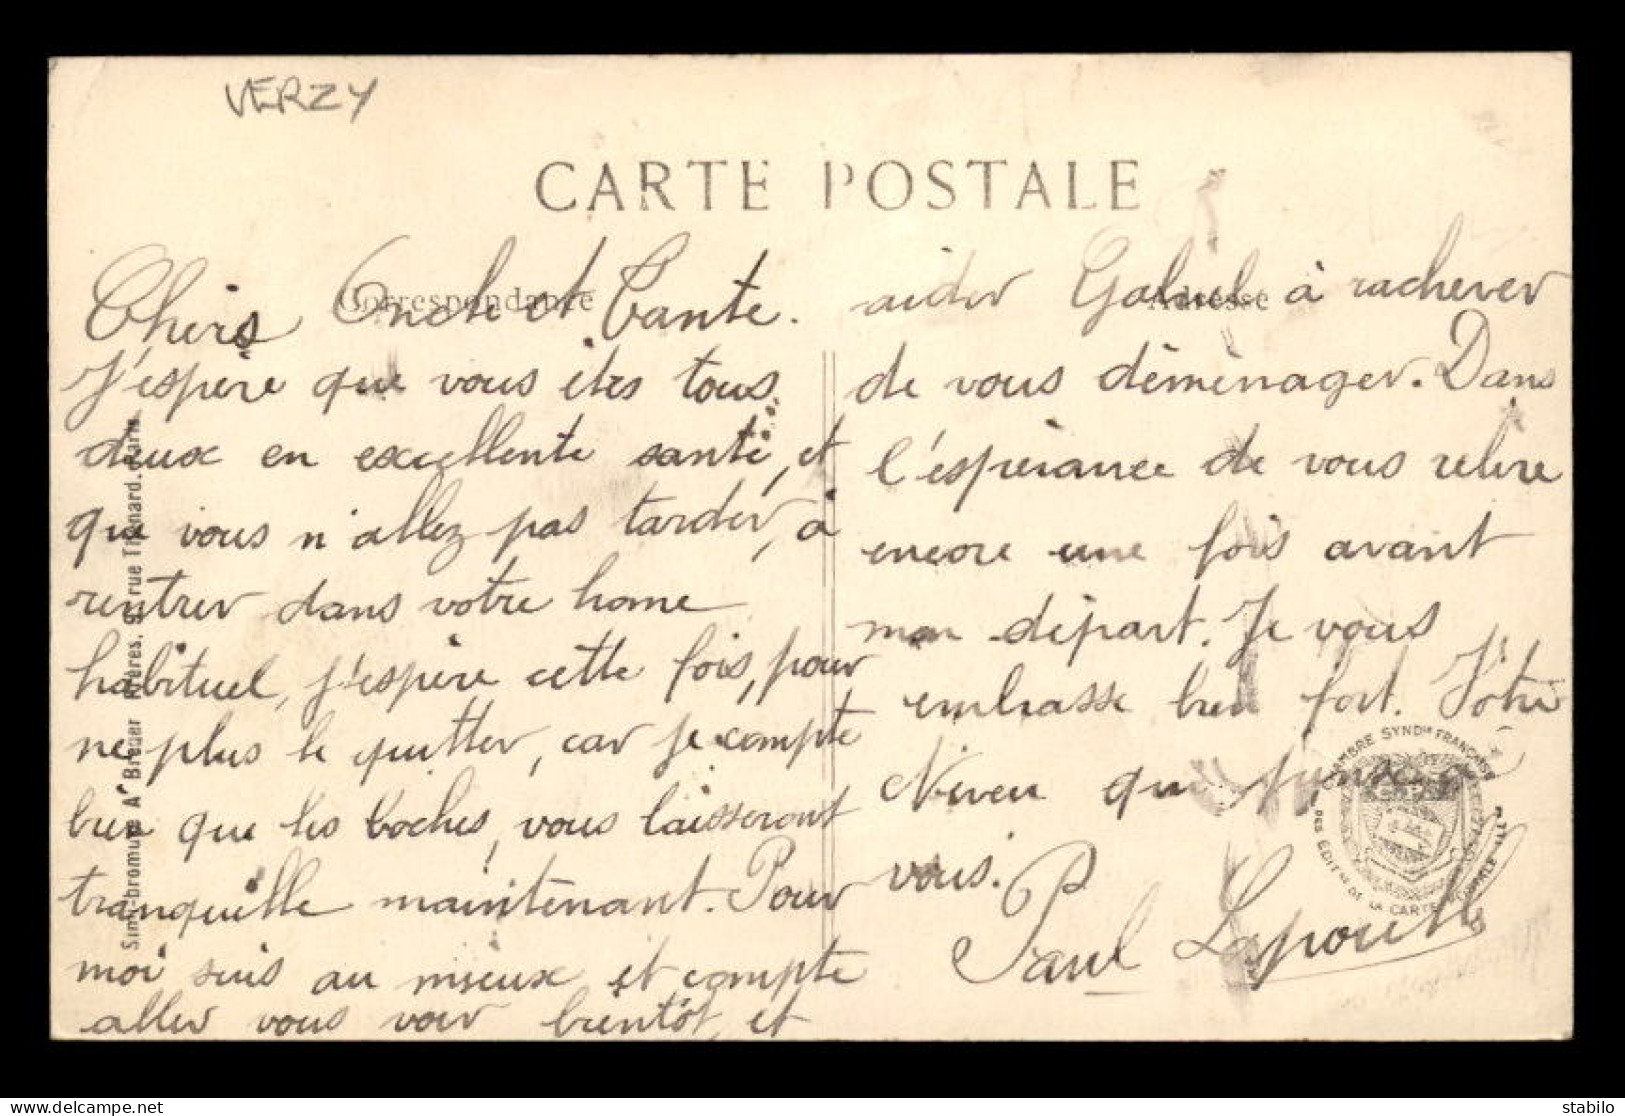 VERZY
CARTE POSTALE
Correspondance
Adresse
Chers Oncle et Tante.
J'espère que vous êtes tous
deux en excellente santé, et
que vous n'allez pas tarder, à
rentrer dans votre home
habituel, j'espère cette fois, pour
ne plus le quitter, car je compte
bien que les boches, vous laisseront
tranquille maintenant. Pour
moi suis au mieux et compte
aller vous voir bientôt, et
aider Gabriel à rachever
de vous déménager. Dans
l'espérance de vous relire
encore une fois avant
mon départ. Je vous
embrasse bien fort. Votre
Neveu qui pense à
vous.
Paul
Simili-bromure A Breger Frères, 9, rue Thénard. Paris
CHAMBRE SYND^le FRANÇAISE
DES EDIT^rs DE LA CARTE POSTALE
stabilo